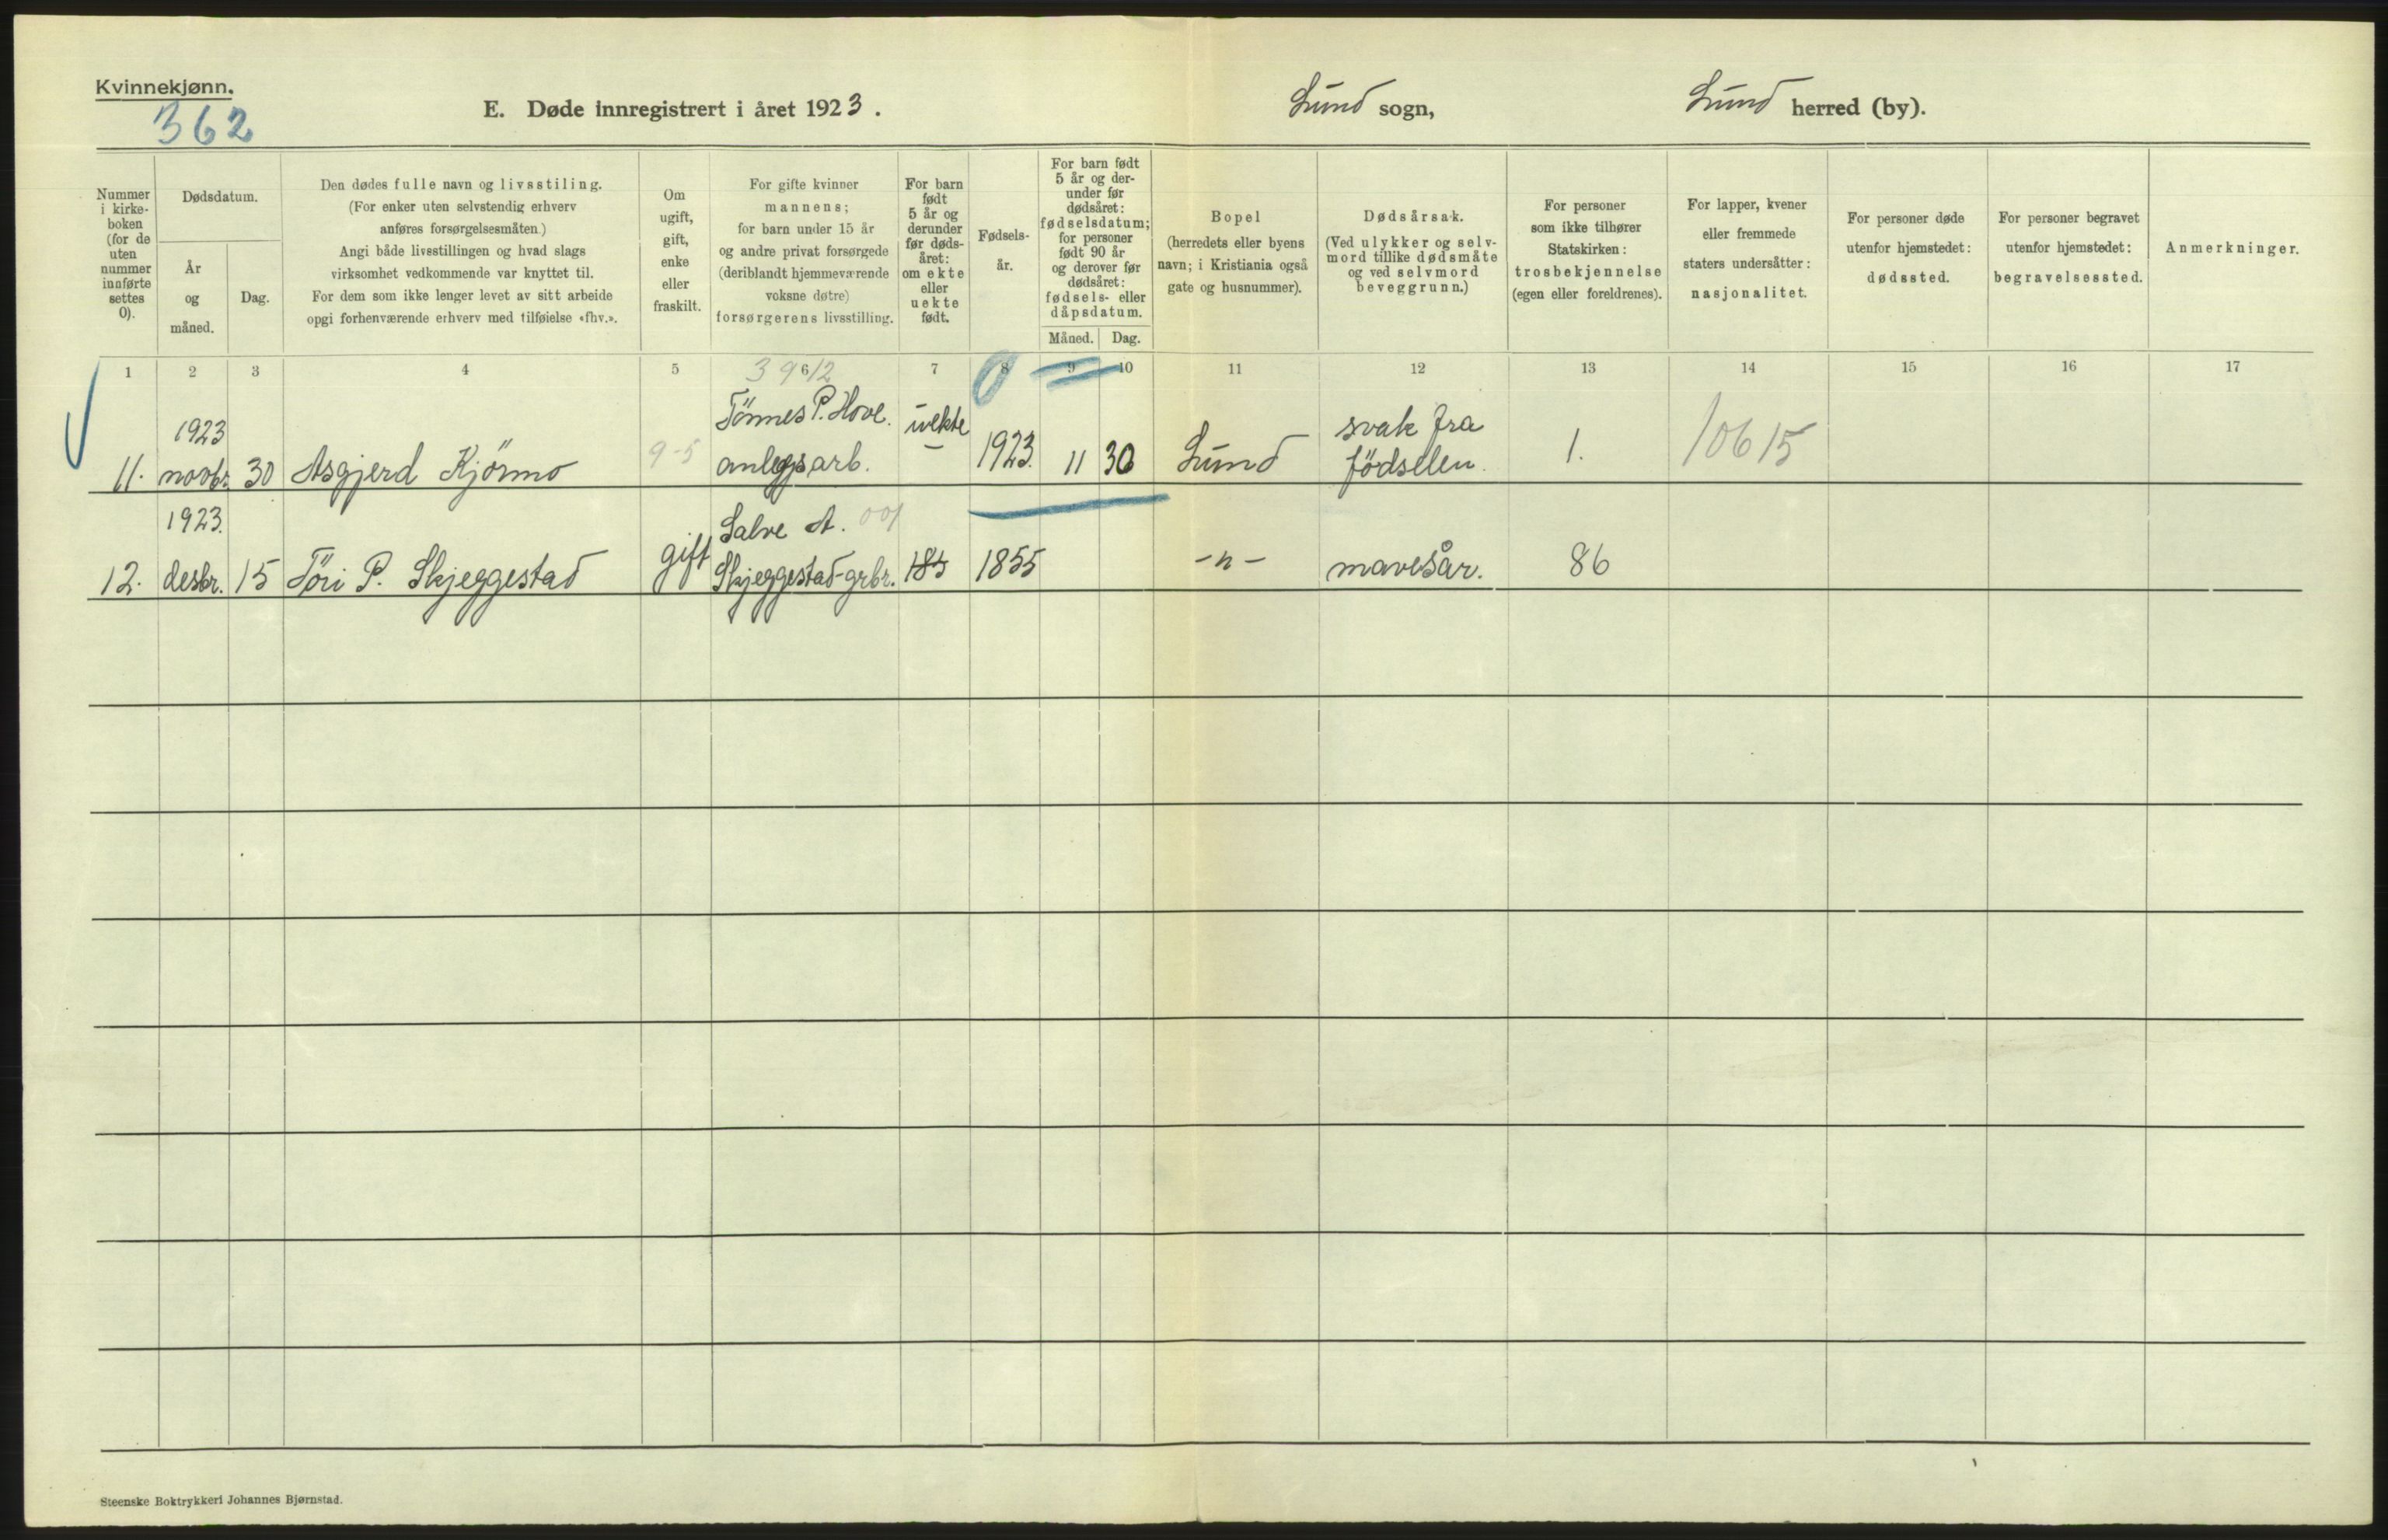 Kvinnekjønn.
362
E. Døde innregistrert i året 1923.
Lund sogn,
Lund herred (by).
Nummer
i kirke-
boken
(for de
uten
nummer
innførte
settes
0).
Dødsdatum.
År
og
måned.
Dag.
Den dødes fulle navn og livsstiling.
(For enker uten selvstendig erhverv
anføres forsørgelsesmåten.)
Angi både livsstillingen og hvad slags
virksomhet vedkommende var knyttet til.
For dem som ikke lenger levet av sitt arbeide
opgi forhenværende erhverv med tilføielse «fhv.».
Om
ugift,
gift,
enke
eller
fraskilt.
For gifte kvinner
mannens;
for barn under 15 år
og andre privat forsørgede
(deriblandt hjemmeværende
voksne døtre)
forsørgerens livsstilling.
For barn
født
5 år og
derunder
før døds-
året:
om ekte
eller
uekte
født.
Fødsels-
år.
For barn født
5 år og der-
under før
dødsåret:
fødselsdatum;
for personer
født 90 år
og derover før
dødsåret:
fødsels- eller
dåpsdatum.
Måned. Dag.
Bopel
(herredets eller byens
navn; i Kristiania også
gate og husnummer).
Dødsårsak.
(Ved ulykker og selv-
mord tillike dødsmåte
og ved selvmord
beveggrunn.)
For personer
som ikke tilhører
Statskirken:
trosbekjennelse
(egen eller foreldrenes).
For lapper, kvener
eller fremmede
staters undersåtter:
nasjonalitet.
For personer døde
utenfor hjemstedet:
dødssted.
For personer begravet
utenfor hjemstedet:
begravelsessted.
Anmerkninger.
1 2 3 4 5 6 7 8 9 10 11 12 13 14 15 16 17
3912
0
1923 Tönnes P. Hove. uekte svak fra
11. novbr. 30 Asgjerd Kjörmo 9-5 anlegsarb. 1923. 11 30 Lund födselen. 1. 10615
1923. Salve A. 001
12. desbr. 15 Töri P. Skjeggestad gift Skjeggestad-grbr. 185 1855 -"- mavesår. 86
Steenske Boktrykkeri Johannes Bjørnstad.